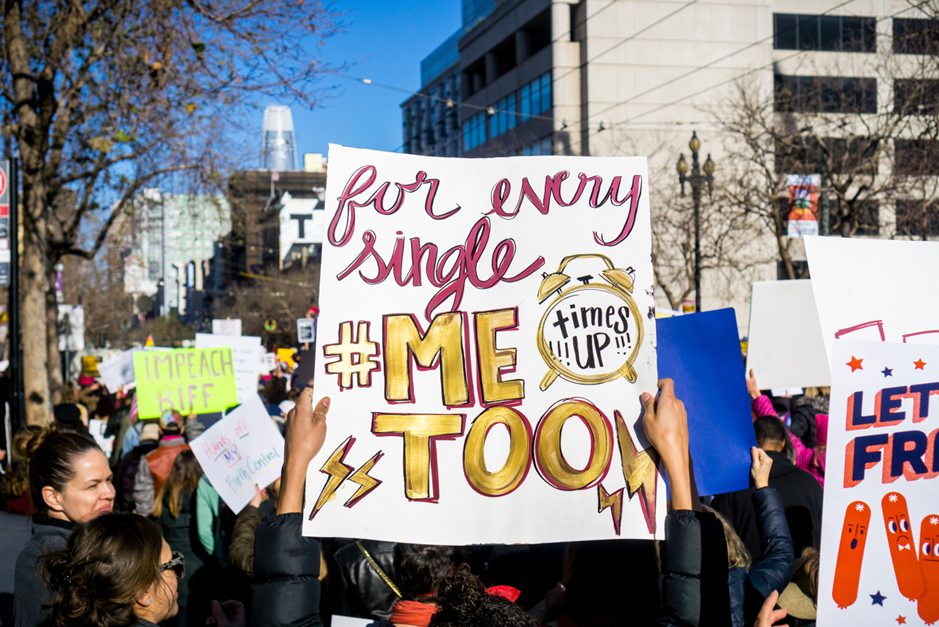 for every
single
#ME
TOO
times
UP
!!!
!!!
IMPEACH
BIFF
Hands off
MY
Birth Control
T
LET
FR